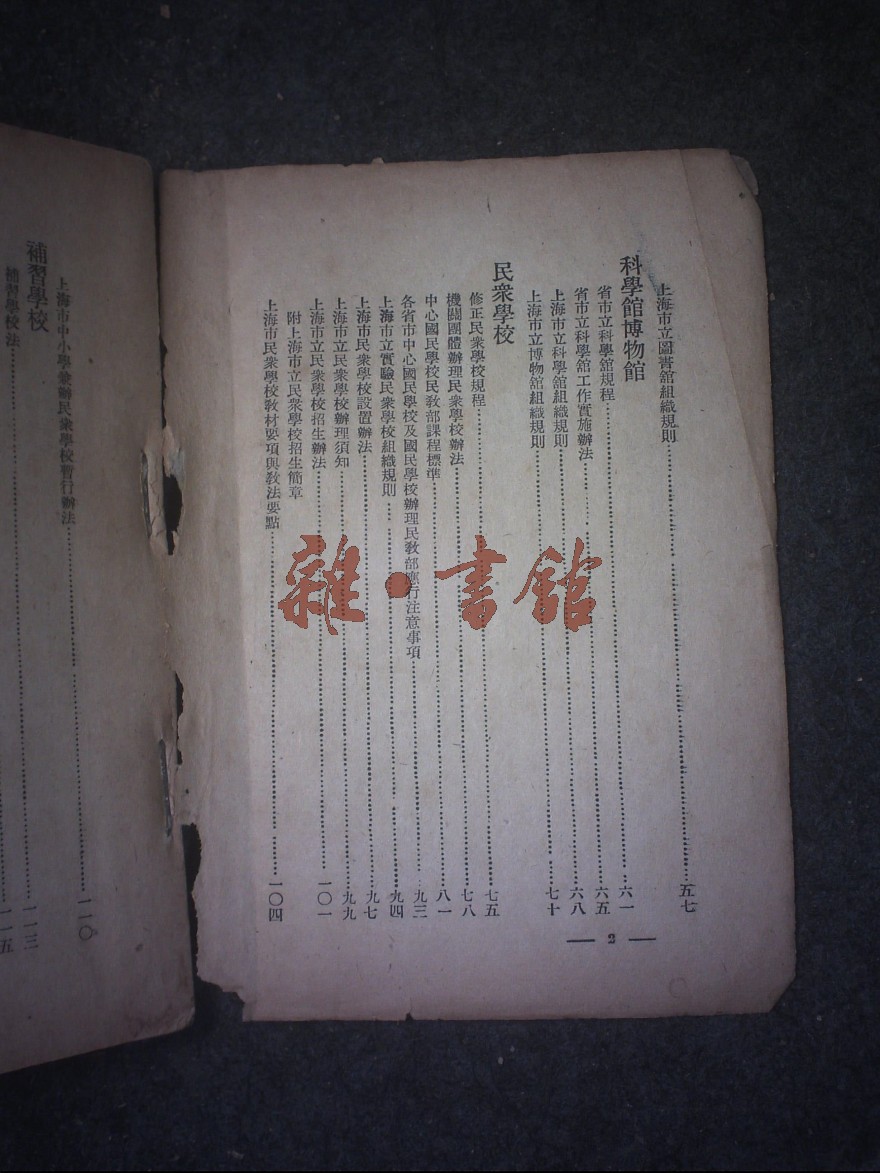 上海市立圖書館組織規則……五七
科學館博物館
省市立科學館規程……六一
省市立科學館工作實施辦法……六五
上海市立科學館組織規則……六八
上海市立博物館組織規則……七十
民衆學校
修正民衆學校規程……七五
機關團體辦理民衆學校辦法……七八
中心國民學校民教部課程標準……八一
各省市中心國民學校及國民學校辦理民教部應行注意事項……九三
上海市立實驗民衆學校組織規則……九四
上海市民衆學校設置辦法……九七
上海市立民衆學校辦理須知……九九
上海市立民衆學校招生辦法……一〇一
附上海市立民衆學校招生簡章
上海市民衆學校教材要項與教法要點……一〇四
— 2 —
上海市中小學兼辦民衆學校暫行辦法……一一〇
補習學校
補習學校法……一一三
一一五
雜·書館